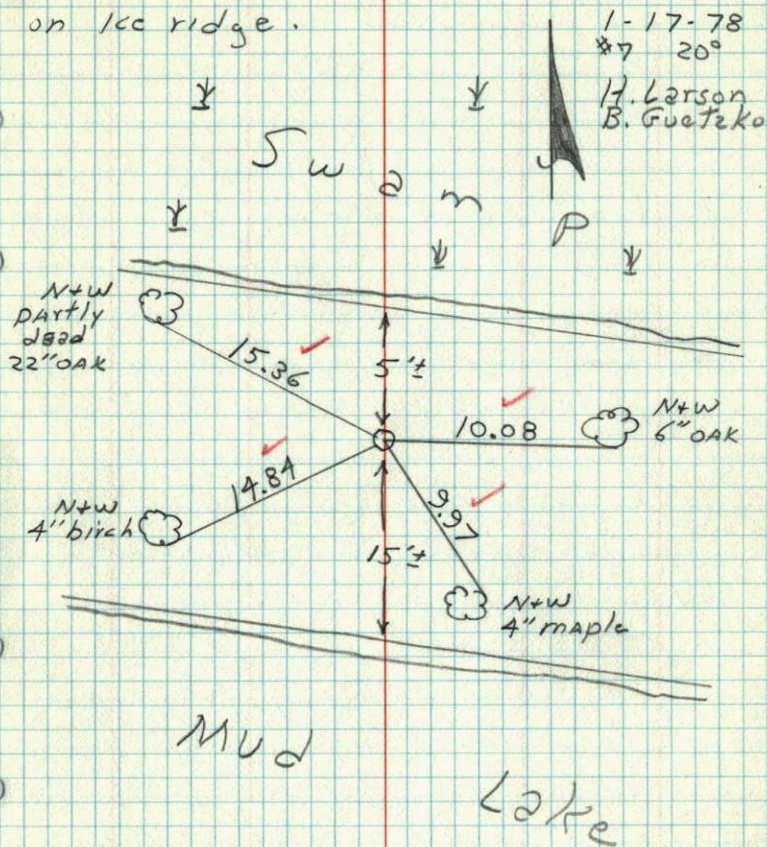 on Ice ridge.
1-17-78
#7 20°
H. Larson
B. Guetzko
Swamp
N+W
partly
dead
22" OAK
15.36
5'±
10.08
N+W
6" OAK
14.84
N+W
4" birch
9.97
15'±
N+W
4" maple
Mud
Lake